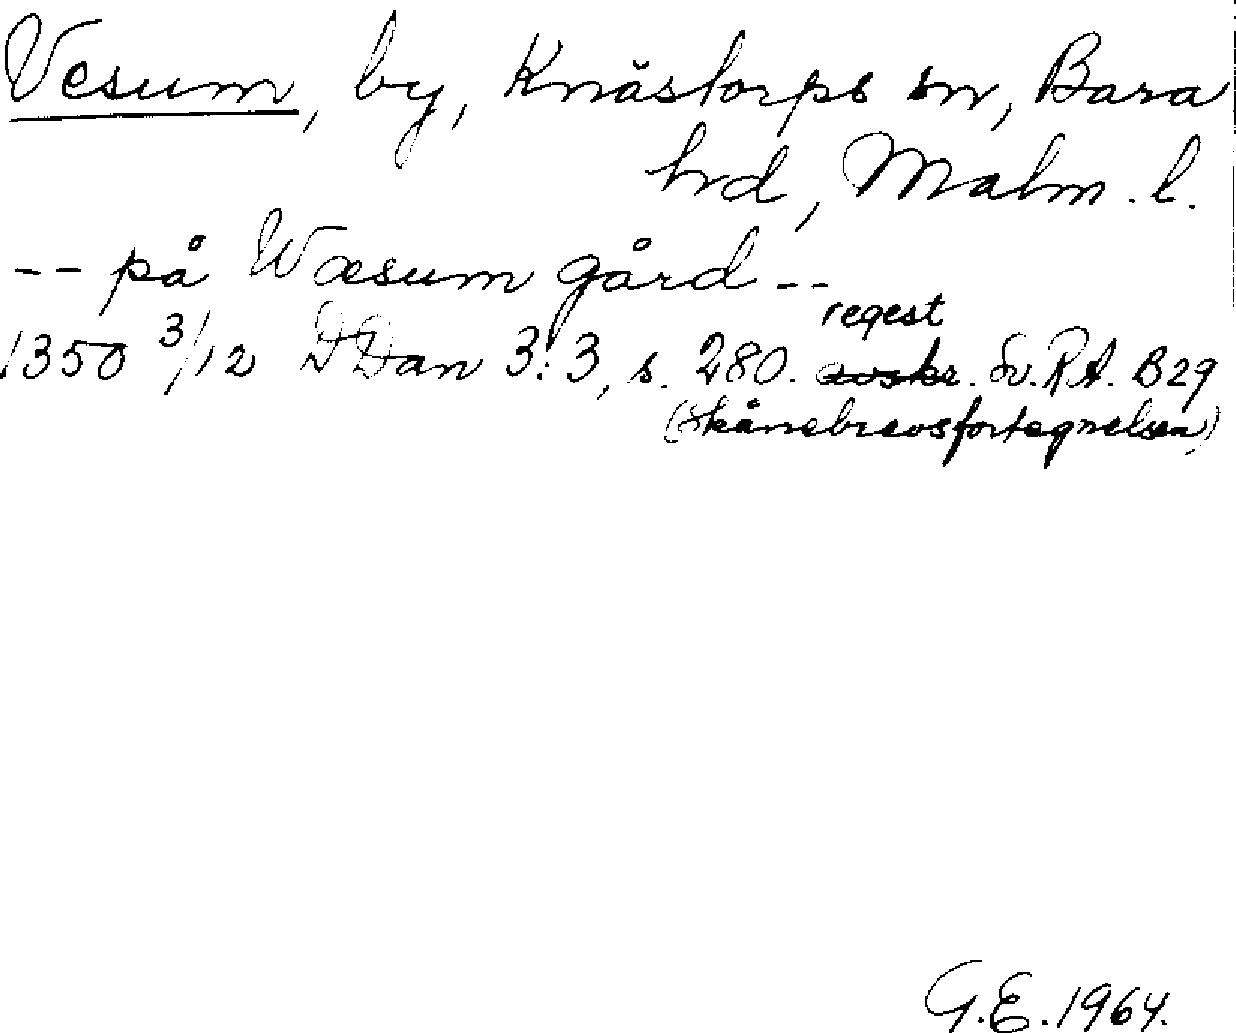 Vesum, by, Knästorps sn, Bara
hrd, Malm. l.
-- på Wæsum gård --
regest
1350 3/12 DDan 3:3, s. 280. avskr. Sv. RA. B29
(Skånebrevsfortegnelsen)
G.E. 1964.